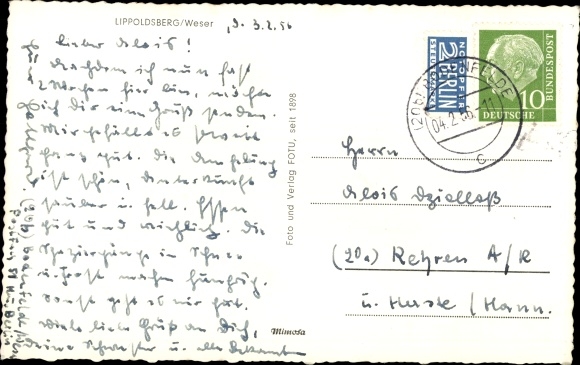 LIPPOLDSBERG/Weser
d. 3.2.56
Lieber Alois!
Nachdem ich nun fast
2 Wochen hier bin, möchte
ich dir einen Gruß senden.
Mir gefällt es soweit
ganz gut. Die Umgebung
ist schön, die Unterkunft
sauber u. hell. Essen
gut und reichlich. Die
Spaziergänge in Schnee
u. Frost machen hungrig.
Sonst geht es mir gut.
Viele liebe Grüße an Dich,
deine Schwester u. alle Bekannten
(20b) Bodenfelde/Weser
Foto und Verlag FOTU, seit 1898
Mimosa
NOTOPFER
2 BERLIN
STEUERMARKE
10
DEUTSCHE
BUNDESPOST
(20b) BODENFELDE
04.2.56.-11
c
Herrn
Alois Dzielloß
(20a) Rehren A/R
u. Haste / Hann.